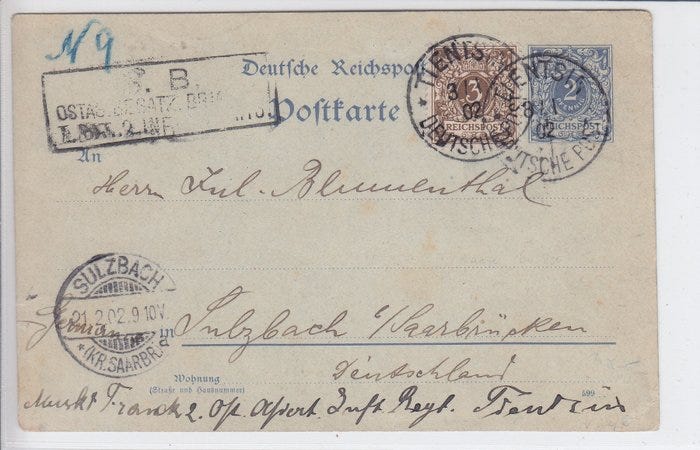 N 9
S. B.
OSTAS. BESATZ. BRIG
2. INF.
Deutsche Reichspost
Postkarte
3
REICHSPOST
2
REICHSPOST
TIENTSIN
3 1
02
DEUTSCHE
TIENTSIN
3 1
02
DEUTSCHE POST
An
Herrn Jul. Blumenthal
SULZBACH
21.2.02.9-10V.
*(KR.SAARBR.
in Sulzbach b/Saarbrücken
Deutschland
Wohnung
(Straße und Hausnummer)
599
Franck 2. Ost. Asiat. Inft. Regt. Tientsin